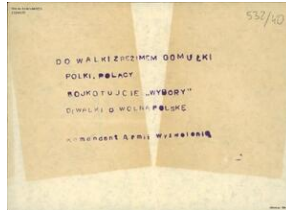 532/40
DO WALKI Z REZIMEM GOMUŁKI
POLKI, POLACY
BOJKOTUJCIE „WYBORY"
DO WALKI O WOLNA POLSKĘ
Komendant Armii Wyzwolenia